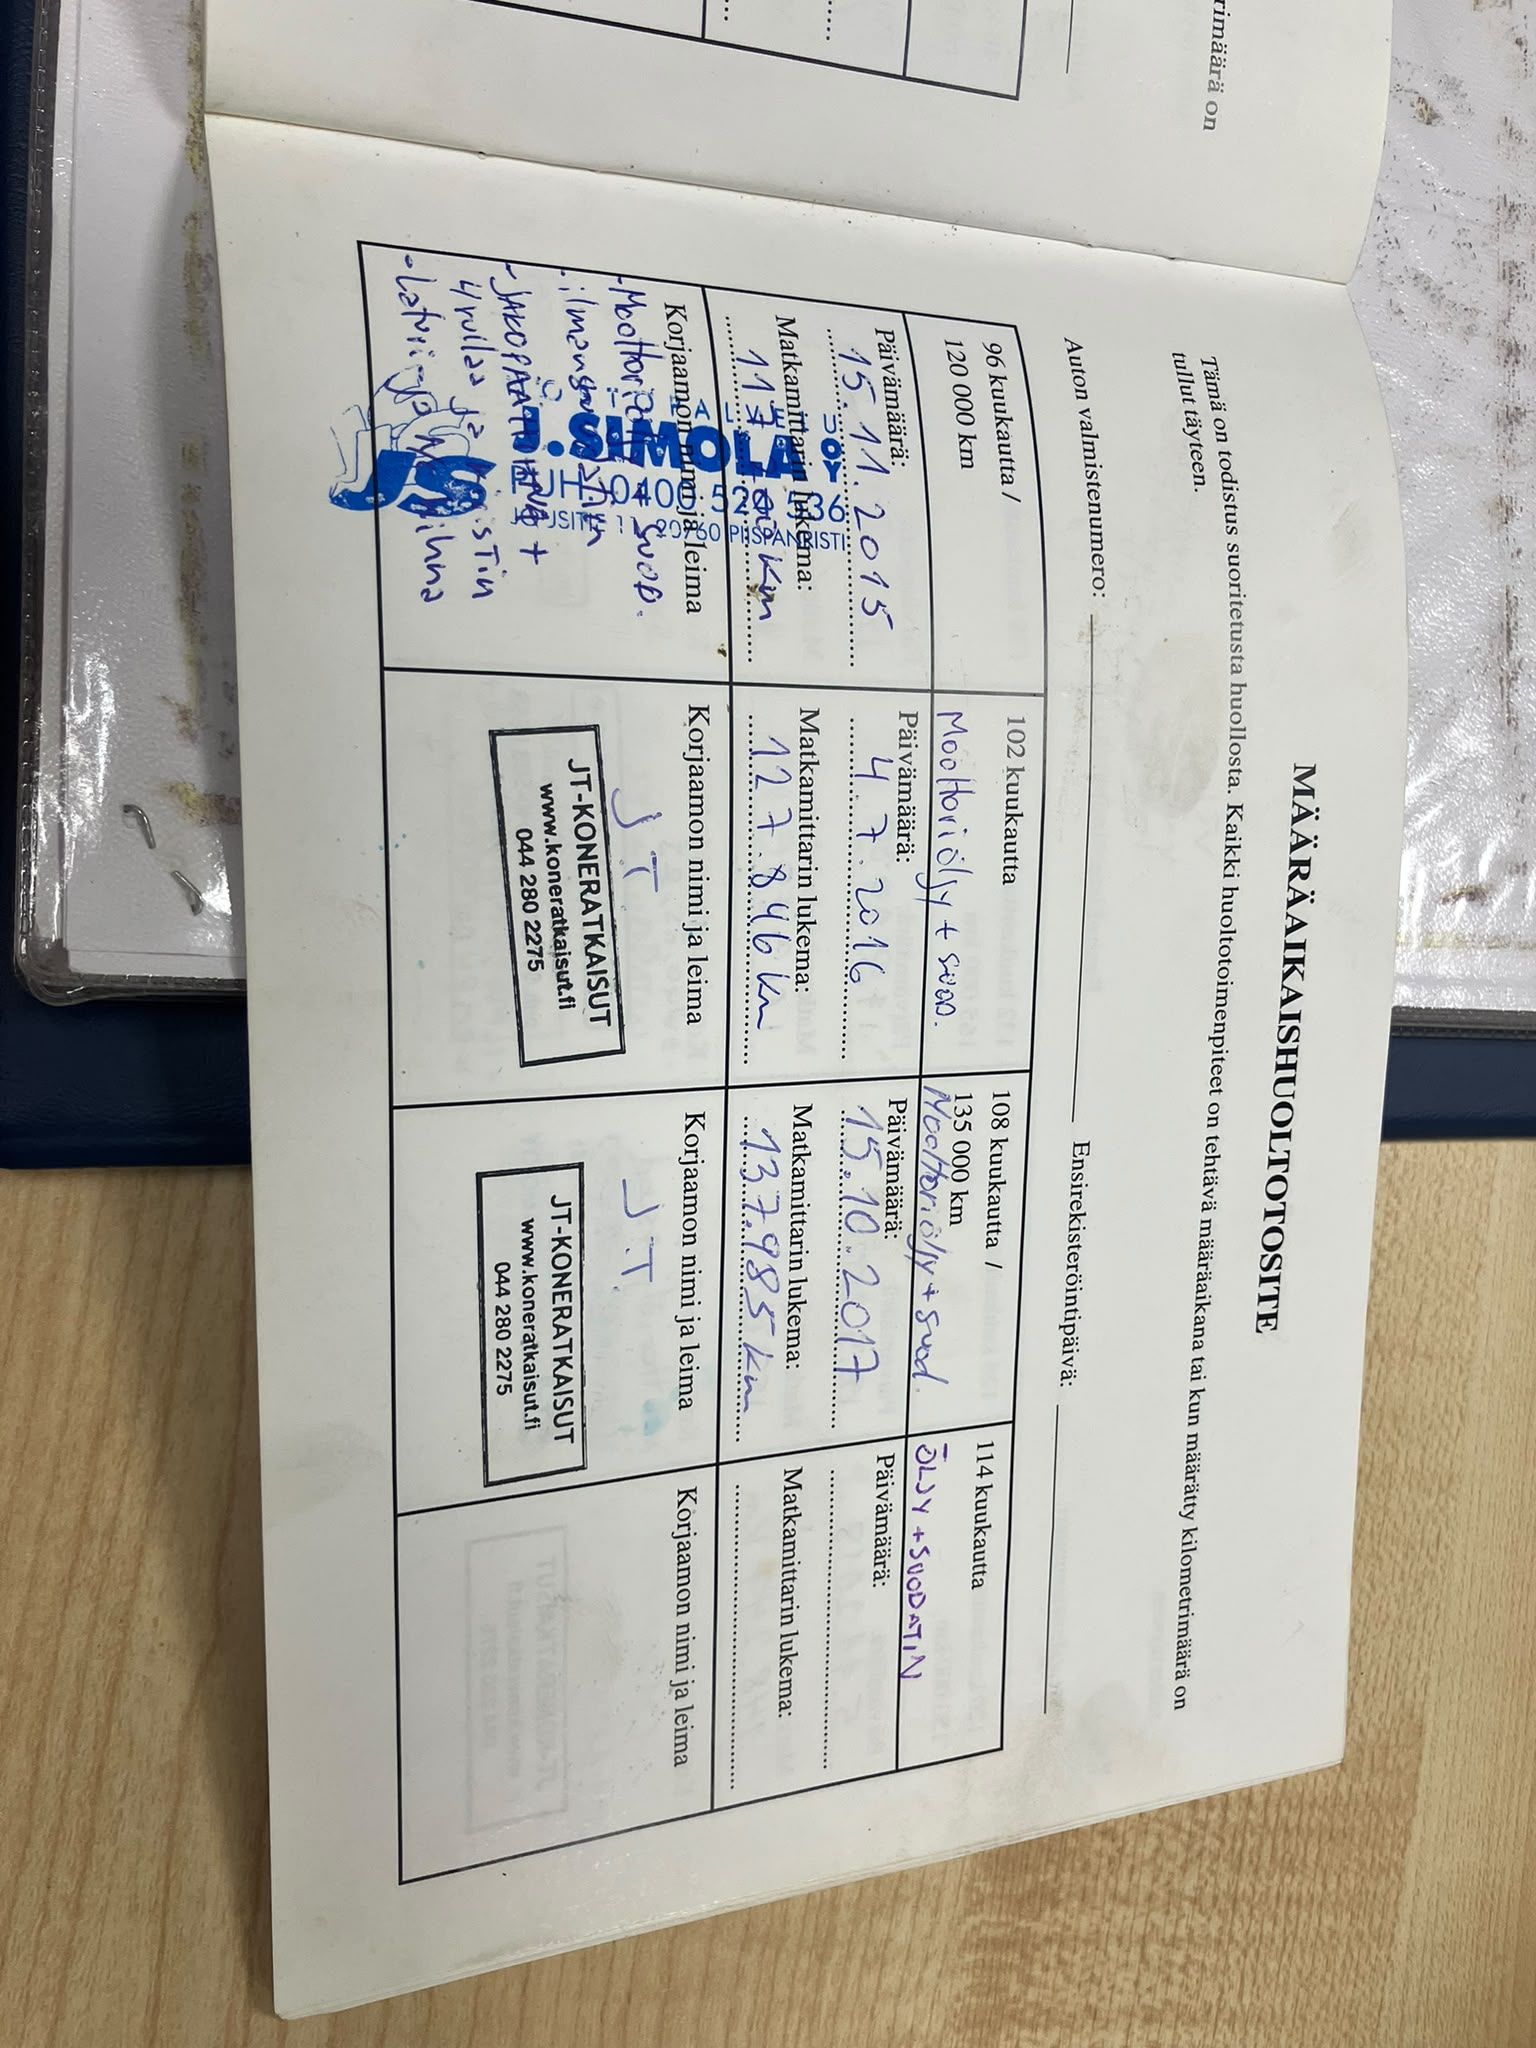 rimäärä on
MÄÄRÄAIKAISHUOLTOTOSITE
Tämä on todistus suoritetusta huollosta. Kaikki huoltotoimenpiteet on tehtävä määräaikana tai kun määrätty kilometrimäärä on
tullut täyteen.
Auton valmistenumero: Ensirekisteröintipäivä:
96 kuukautta /
120 000 km
Päivämäärä:
15.11.2015
Matkamittarin lukema:
117 km
Korjaamon nimi ja leima
J.SIMOLA OY
PUH 0400 520 536
PIISPANRISTI
JS
-Moottoriöljy + suod.
-JAKOPÄÄN HIHNA +
4 rullaa ja
-Laturin hihna
102 kuukautta
Moottoriöljy + suod.
Päivämäärä:
4.7.2016
Matkamittarin lukema:
127.846 km
Korjaamon nimi ja leima
JT
JT-KONERATKAISUT
www.koneratkaisut.fi
044 280 2275
108 kuukautta /
135 000 km
Moottoriöljy + suod.
Päivämäärä:
15.10.2017
Matkamittarin lukema:
137.985 km
Korjaamon nimi ja leima
J.T.
JT-KONERATKAISUT
www.koneratkaisut.fi
044 280 2275
114 kuukautta
ÖLJY + SUODATIN
Päivämäärä:
Matkamittarin lukema:
Korjaamon nimi ja leima